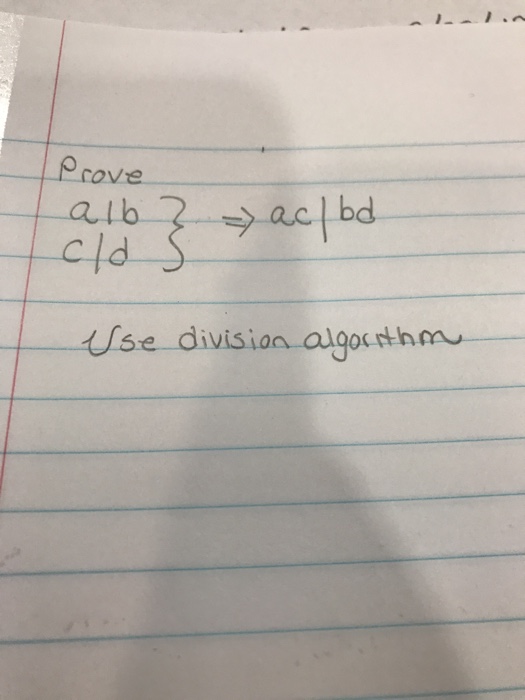 Prove
a|b } ⇒ ac|bd
c|d
Use division algorithm